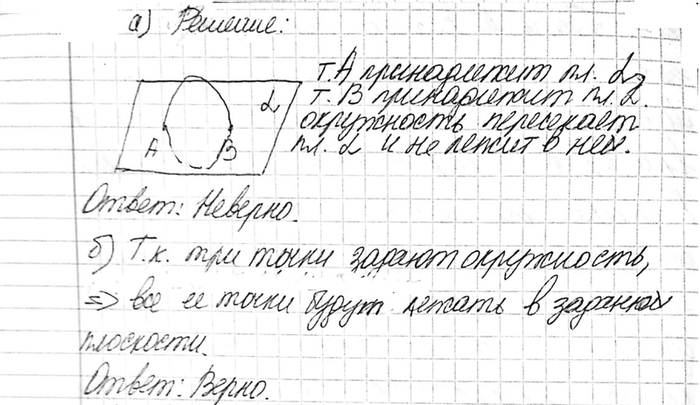 а) Решение:
т. А принадлежит пл. α,
т. В принадлежит пл. α.
окружность пересекает
пл. α и не лежит в ней.
α
А В
Ответ: Неверно.
б) Т.к. три точки задают окружность,
=> все ее точки будут лежать в заданной
плоскости.
Ответ: Верно.